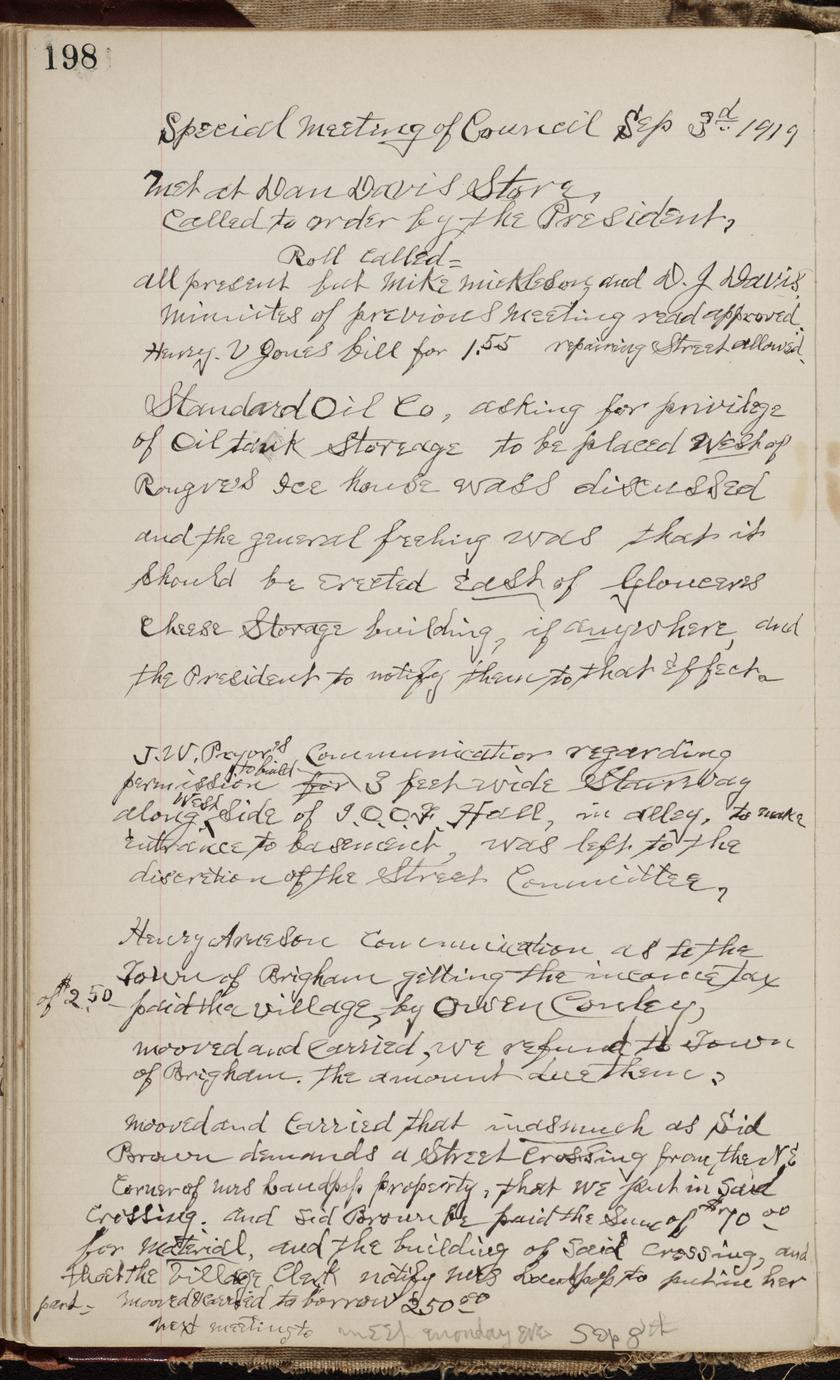 198
Special Meeting of Council Sep 3d 1919
Met at Dan Davis Store,
Called to order by the President,
Roll Called=
all present but Mike Mickleson, and D. J Davis,
Minuites of previous Meeting read approved.
Henry. V Jones bill for 1.55 repairing Street allowed.
Standard Oil Co, asking for privilege
of Oil tank Storeage to be placed West of
Ice house wass discussed
and the general feeling was that it
should be Erected East of
Cheese Storage building, if anywhere, and
the President to notify them to that Effect.
J. W. Pryor's Communication regarding
to build
permission for 3 feet wide Stairway
West
along Side of I.O.O.F. Hall, in alley, to make
Entrance to basement, was left to the
discretion of the Street Committee,
Henry Arneson Communication as to the
Town of Brigham getting the income tax
of $2.50 paid the village, by Owen Conley,
mooved and Carried, we refund to Town
of Brigham. the amount due them.
mooved and Carried that inasmuch as Sid
Brown demands a Street Crossing from the NE
Corner of Mrs property, that we put in Said
Crossing. and Sid Brown be paid the Sum of $70 00
for Material, and the building of Said Crossing, and
that the Village Clerk notify Mrs to put in her
part- mooved & carried to borrow 250 00
next meeting to meet monday eve Sep 8th